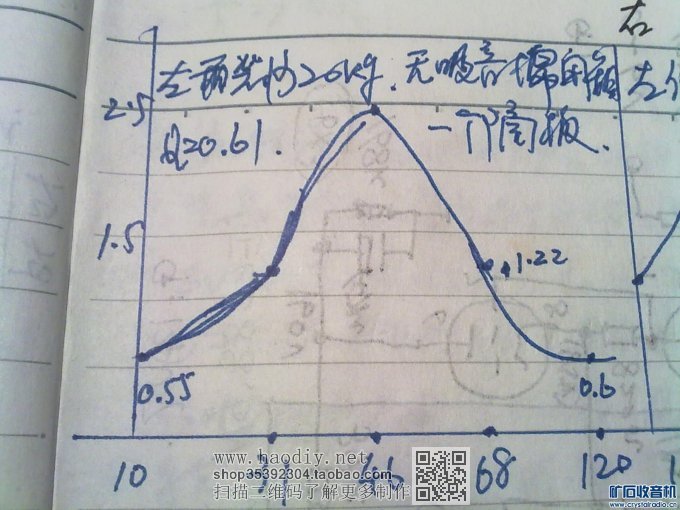 右
左两装沙20kg.无吸音棉
左
2.5
Q=0.61.
一个间板.
1.5
1.22
0.55
0.6
10
68
120
www.haodiy.net
shop35392304.taobao.com
扫描二维码了解更多制作
矿石收音机
www.crystalradio.cn